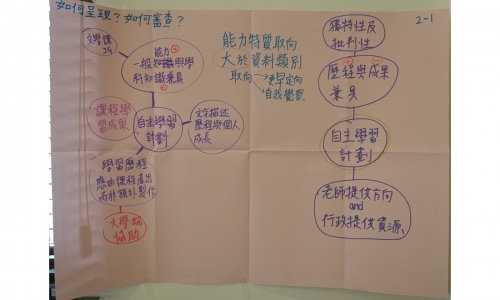 如何呈現？如何審查？
2-1
文學課
巧
能力
一般知識與學
科知識兼具
課程學
習成果
自主學習
計劃
文字描述
歷程與個人
成長
學習歷程
應由課程產出
而非額外製作
大學端
協助
能力特質取向
大於資料類別
取向→更早定向
自我覺察
獨特性及
批判性
歷程與成果
兼具
自主學習
計劃
老師提供方向
and
行政提供資源